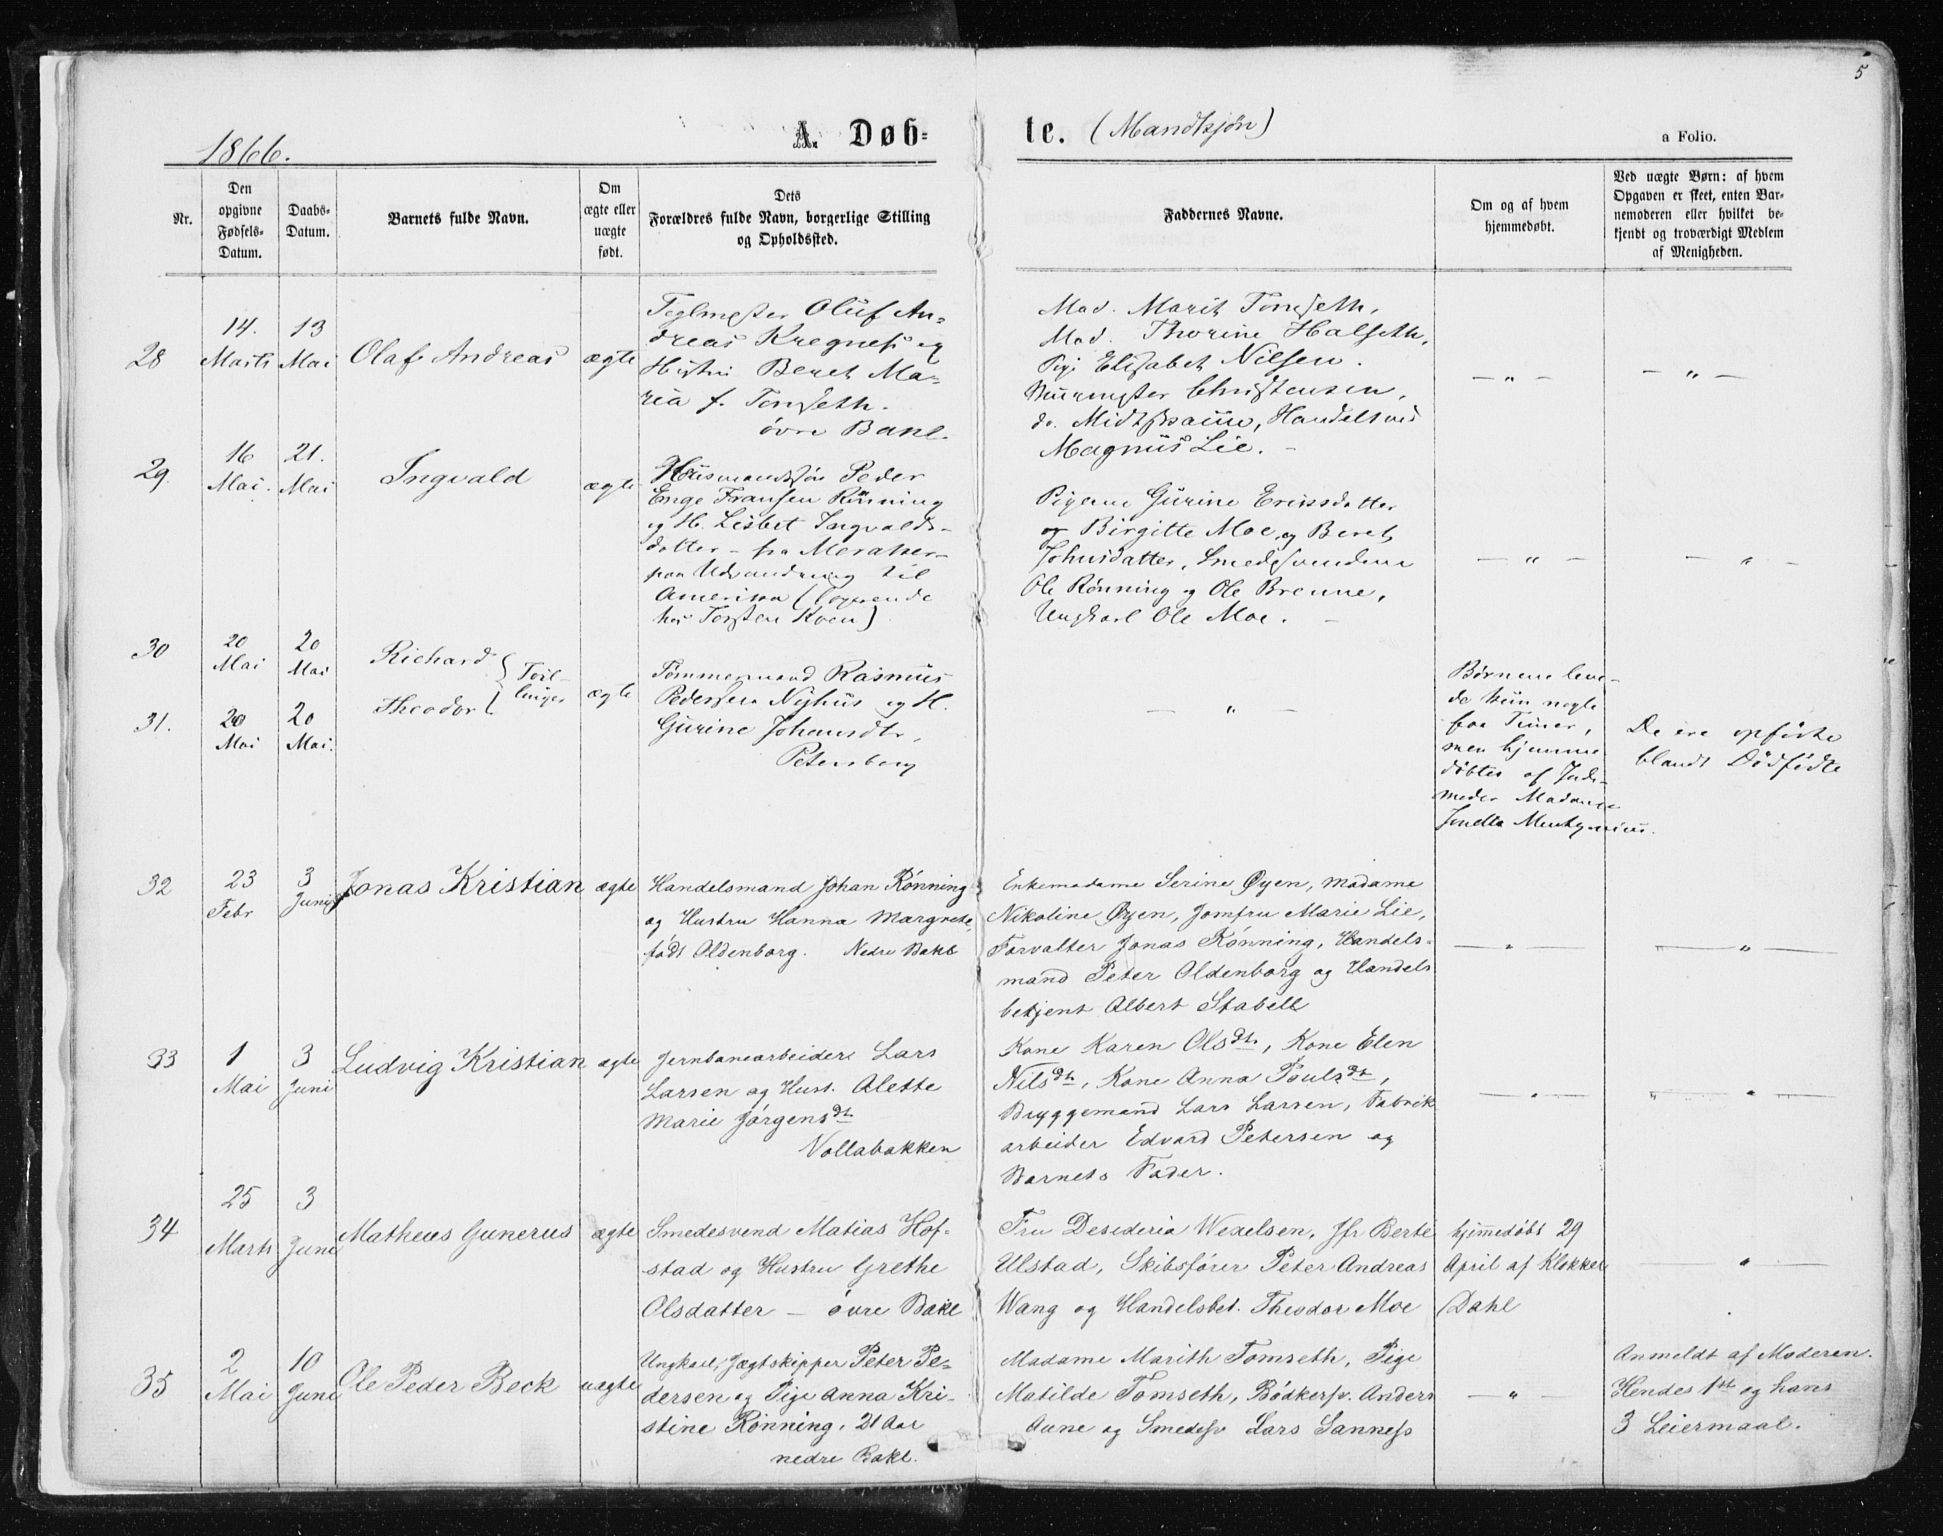 5
1866.
A. Døbte. (Mandkjøn)
a Folio.
Nr.
Den opgivne Fødsels-Datum.
Daabs-Datum.
Barnets fulde Navn.
Om ægte eller uægte født.
Dets Forældres fulde Navn, borgerlige Stilling og Opholdssted.
Faddernes Navne.
Om og af hvem hjemmedøbt.
Ved uægte Børn: af hvem Opgaven er skeet, enten Barnemoderen eller hvilket bekjendt og troværdigt Medlem af Menigheden.
28
14. Marts
13 Mai
Olaf Andreas
ægte
Teglmester Oluf An-
dreas Kregnes og
Hustru Beret Ma-
ria f. Tomseth.
øvre Bakl.
Mad. Marit Tomseth,
Mad. Thorine Halseth,
Pige Elisabet Nilsen.
Muurmester Christensen,
do. Midtsaune, Handelsbed
Magnus Lie. -
— " —
— " —
29
16 Mai.
21. Mai
Ingvald
ægte
Husmandssøn Peder
Enge Fransen Rønning
og H. Lisbet Ingvalds-
datter - fra Meraker -
paa Udvandring til
Amerika (logerende
hos Torsten Kven)
Pigerne Gurine Ericsdatter
og Birgitte Moe og Beret
Johnsdatter, Smedesvendene
Ole Rønning og Ole Brenne,
Ungkarl Ole Moe. -
— " —
— " —
30
20 Mai
20 Mai
Richard
31.
20 Mai
20 Mai.
Theodor
Tvil-
linger
ægte
Tømmermand Rasmus
Pedersen Nyhus og H.
Gurine Johansdtr,
Petersborg
— " —
Børnene leve-
de kun nogle
faa Timer,
men hjemme
døbtes af Jorde-
moder Madame
De ere opførte
blandt Dødfødte
32
23 Febr
3 Juni
Jonas Kristian
ægte
Handelsmand Johan Rønning
og Hustru Hanna Margrete,
født Oldenborg. Nedre Bakl
Enkemadame Serine Øyen, Madame
Nikoline Øyen, Jomfru Marie Lie,
Forvalter Jonas Rønning, Handels-
mand Peter Oldenborg og Handels
betjent Albert Stabell
— " —
— " —
33
1 Mai
3 Juni
Ludvig Kristian
ægte
Jernbanearbeider Lars
Larsen og Hust. Alette
Marie Jørgensdt.
Vollabakken
Kone Karen Olsdt., Kone Elen
Nilsdt., Kone Anna Poulsdt.,
Bryggemand Lars Larsen, Fabrik
arbeider Edvard Petersen og
Barnets Fader.
— " —
" — " —
34
25 Marts
3 Juni
Matheus Gunerus
ægte
Smedesvend Matias Hof-
stad og Hustru Grethe
Olsdatter — øvre Bakl
Fru Desideria Wexelsen, Jfr Berte
Ulstad, Skibsfører Peter Andreas
Wang og Handelsbet. Theodor Moe
hjemmedøbt 29
April af Klokker
Dahl
— " —
35
2 Mai
10 Juni
Ole Peder Beck
uægte
Ungkarl, Jægtskipper Peter Pe-
dersen og Pige Anna Kri-
stine Rønning, 21 Aar
nedre Bakl.
Madame Marith Tomseth, Pige
Matilde Tomseth, Bødkersv. Anders
Aune og Smedesv Lars Sanness
— " —
Anmeldt af Moderen.
Hendes 1st og hans
3 Leiermaal.